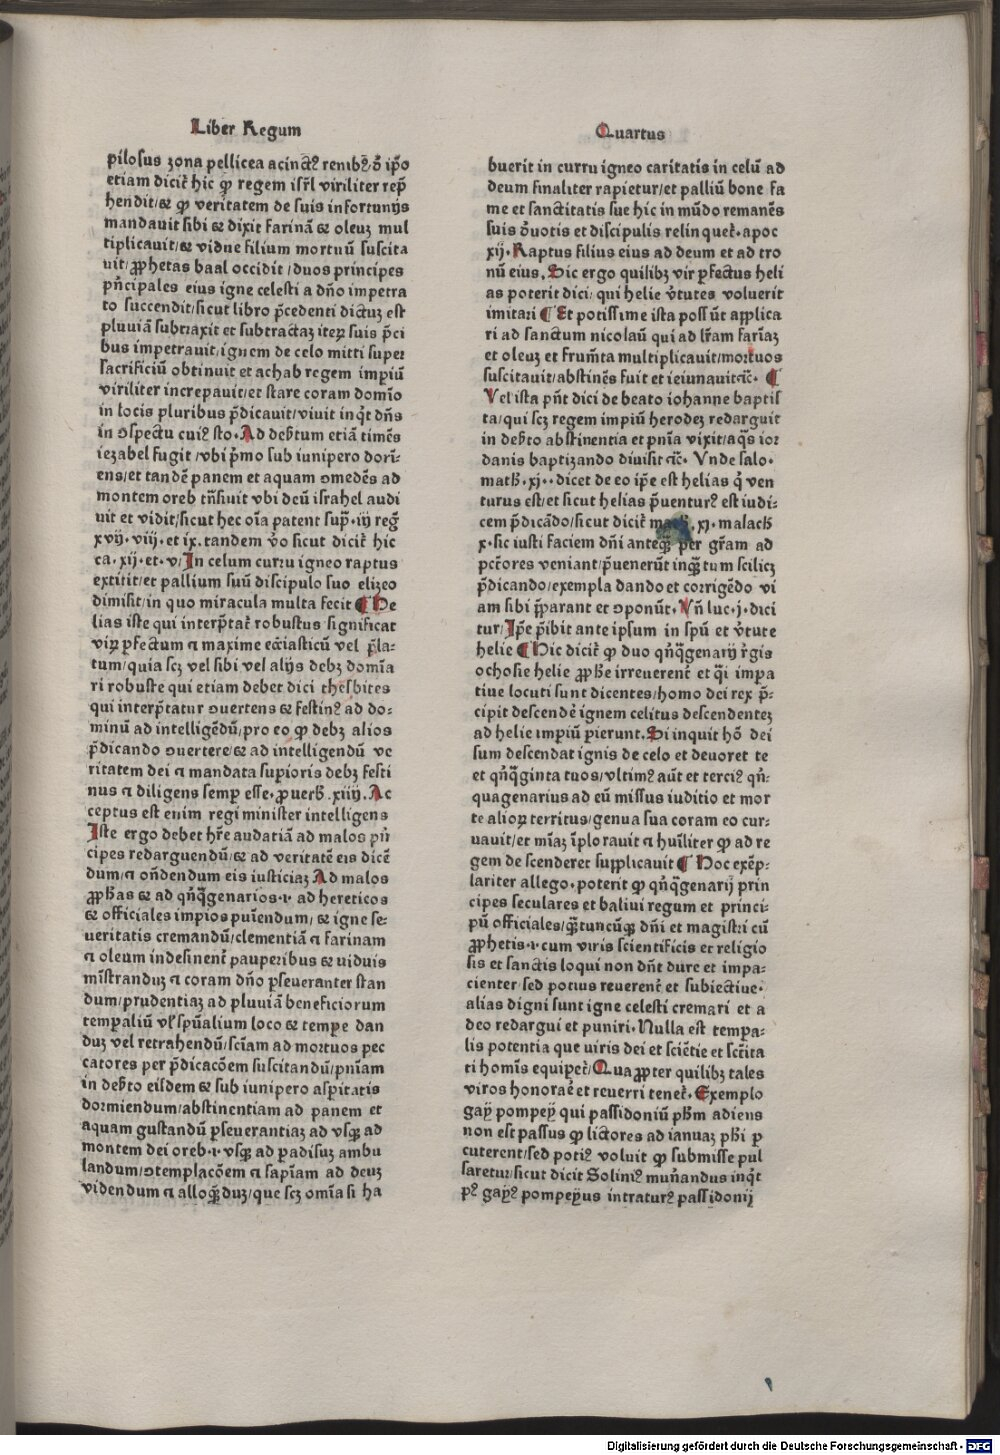 Liber Regum
pilosus zona pellicea acinctꝰ renibꝰ. ð ip̄o
etiam dicit̄ hic ꝙ regem isr̄l viriliter rep̄
hendit/⁊ ꝙ veritatem de suis infortunijs
mandauit sibi ⁊ dixit farinā ⁊ oleuꝫ mul
tiplicauit/⁊ vidue filium mortuū suscita
uit/ꝓphetas baal occidit/duos principes
pn̄cipales eius igne celesti a dn̄o impetra
to succendit/sicut libro p̄cedenti dictuꝫ est
pluuiā subtraxit et subtractaꝫ iteꝝ suis p̄ci
bus impetrauit/ignem de celo mitti super
sacrificiū obtinuit et achab regem impiū
viriliter increpauit/et stare coram domīo
in locis pluribus p̄dicauit/viuit inqͥt dn̄s
in ↄspectu cuiꝰ sto. Ad deb̄tum etiā timēs
iezabel fugit/vbi pͥmo sub iunipero dormī
ens/et tandē panem et aquam ↄmedēs ad
montem oreb tn̄siuit vbi deū israhel audi
uit et vidit/sicut hec oīa patent sup̄.iij reḡ
xvij.viij.et ix. tandem v̄o sicut dicit̄ hic
ca.xij.et.v/In celum curru igneo raptus
extitit/et pallium suū discipulo suo elizeo
dimisit/in quo miracula multa fecit ¶ He
lias iste qui interp̄tat̄ robustus significat
viꝝ ꝑfectum ⁊ maxime ecc̄iasticū vel p̄la-
tum/quia scꝫ vel sibi vel alijs debꝫ domīa
ri robuste qui etiam debet dici thesbites
qui interp̄tatur ↄuertens ⁊ festinꝰ ad do-
minū ad intelligēdū/pro eo ꝙ debꝫ alios
p̄dicando ↄuertere/⁊ ad intelligendū ve
ritatem dei ⁊ mandata suꝑioris debꝫ festi
nus ⁊ diligens semꝑ esse. ꝓuerb̄.xiiij. Ac
ceptus est enim regi minister intelligens
Iste ergo debet hr̄e audatiā ad malos pri̅
cipes redarguendū/⁊ ad veritatē eis dicē
dum/⁊ on̄dendum eis iusticiaꝫ Ad malos
ꝓph̄as ⁊ ad qn̄qͣgenarios.i. ad hereticos
⁊ officiales impios puīendum/⁊ igne se-
ueritatis cremandū/clementiā ⁊ farinam
⁊ oleum indesinent̄ pauperibus ⁊ viduis
mīstranduꝫ ⁊ coram dn̄o ꝑseueranter stan
dum/prudentiaꝫ ad pluuiā beneficiorum
temꝑaliū vl̄ spūalium loco ⁊ tempe dan
duꝫ vel retrahendū/sc̄iam ad mortuos pec
catores per p̄dicacōem suscitandū/pn̄iam
in deb̄to eisdem ⁊ sub iunipero aspitatis
dormiendum/abstinentiam ad panem et
aquam gustandū ꝑseuerantiaꝫ ad vsqꝫ ad
montem dei oreb.i. vsqꝫ ad ꝑadisuꝫ ambu
landum/ↄtemplacōem ⁊ sapīam ad deuꝫ
videndum ⁊ alloqͣduꝫ/que scꝫ omīa si ha
Quartus
buerit in curru igneo caritatis in celū ad
deum finaliter rapietur/et palliū bone fa
me et sanctitatis sue hic in mūdo remanēs
suis ðuotis et discipulis relinquet̄. apoc
xij. Raptus filius eius ad deum et ad tro
nū eius. Sic ergo quilibꝫ vir ꝑfectus heli
as poterit dici/ qui helie v̄tutes voluerit
imitari ¶ Et potissime ista possūt applica
ri ad sanctum nicolaū qui ad lr̄am farīaꝫ
et oleuꝫ et frum̄ta multiplicauit/mortuos
suscitauit/abstinēs fuit et ieiunauit ⁊c̄. ¶
Vel ista pn̄t dici de beato iohanne baptis
ta/qui scꝫ regem impiū herodeꝫ redarguit
in deb̄to abstinentia et pn̄ia vixit/aqͣs ior
danis baptizando diuisit ⁊c̄. Vnde salo-
math̄.xj.. dicet de eo ip̄e est helias qͥ ven
turus est/et sicut helias p̄uenturꝰ est iudi-
cem p̄dicādo/sicut dicit̄ .xj. malach̄
x. sic iusti faciem dn̄i anteqͣ per gr̄am ad
pctōres veniant/p̄uenerūt inqͣtum scilicꝫ
p̄dicando/exempla dando et corrigēdo vi
am sibi p̄parant et ↄponūt. Vn̄ luc.j. dici
tur/Ip̄e p̄ibit ante ipsum in spū et v̄tute
helie ¶ Hic dicit̄ ꝙ duo qn̄qͣgenarij r̄gis
ochosie helie ꝓph̄e irreuerent̄ et qͣi impa
tiue locuti sunt dicentes/homo dei rex p̄-
cipit descendē ignem celitus descendenteꝫ
ad helie impiū ꝑierunt. Si inquit hō dei
sum descendat ignis de celo et deuoret te
et qn̄qͣginta tuos/vltimꝰ aūt et terciꝰ qn̄-
quagenarius ad eū missus iuditio et mor
te alioꝝ territus/genua sua coram eo cur-
uauit/et mīaꝫ īplorauit ⁊ huīliter ꝙ ad re
gem descenderet supplicauit ¶ Hoc exēp-
lariter allego. poterit ꝙ qn̄qͣgenarij prin
cipes seculares et baliui regum et princi-
pū officiales/qͣtuncūqꝫ dn̄i et magistri cū
ꝓphetis.i. cum viris scientificis et religio
sis et sanctis loqui non dn̄t dure et impa-
cienter/sed potius reuerent̄ et subiectiue.
alias digni sunt igne celesti cremari et a
deo redargui et puniri. Nulla est tempa-
lis potentia que viris dei et sciētie et scr̄ita
ti homīs equipet̄/Quapropter quilibꝫ tales
viros honorāe et reuerri tenet̄. Exemplo
gaij pompeij qui passidoniū ph̄m adiens
non est passus ꝙ lictores ad ianuaꝫ ph̄i ꝑ
cuterent/sed potiꝰ voluit ꝙ submisse pul
saretur/sicut dicit Soliniꝰ mūnandus inqͥt
pꝰ gayꝰ pompeyus intraturꝰ passidonij